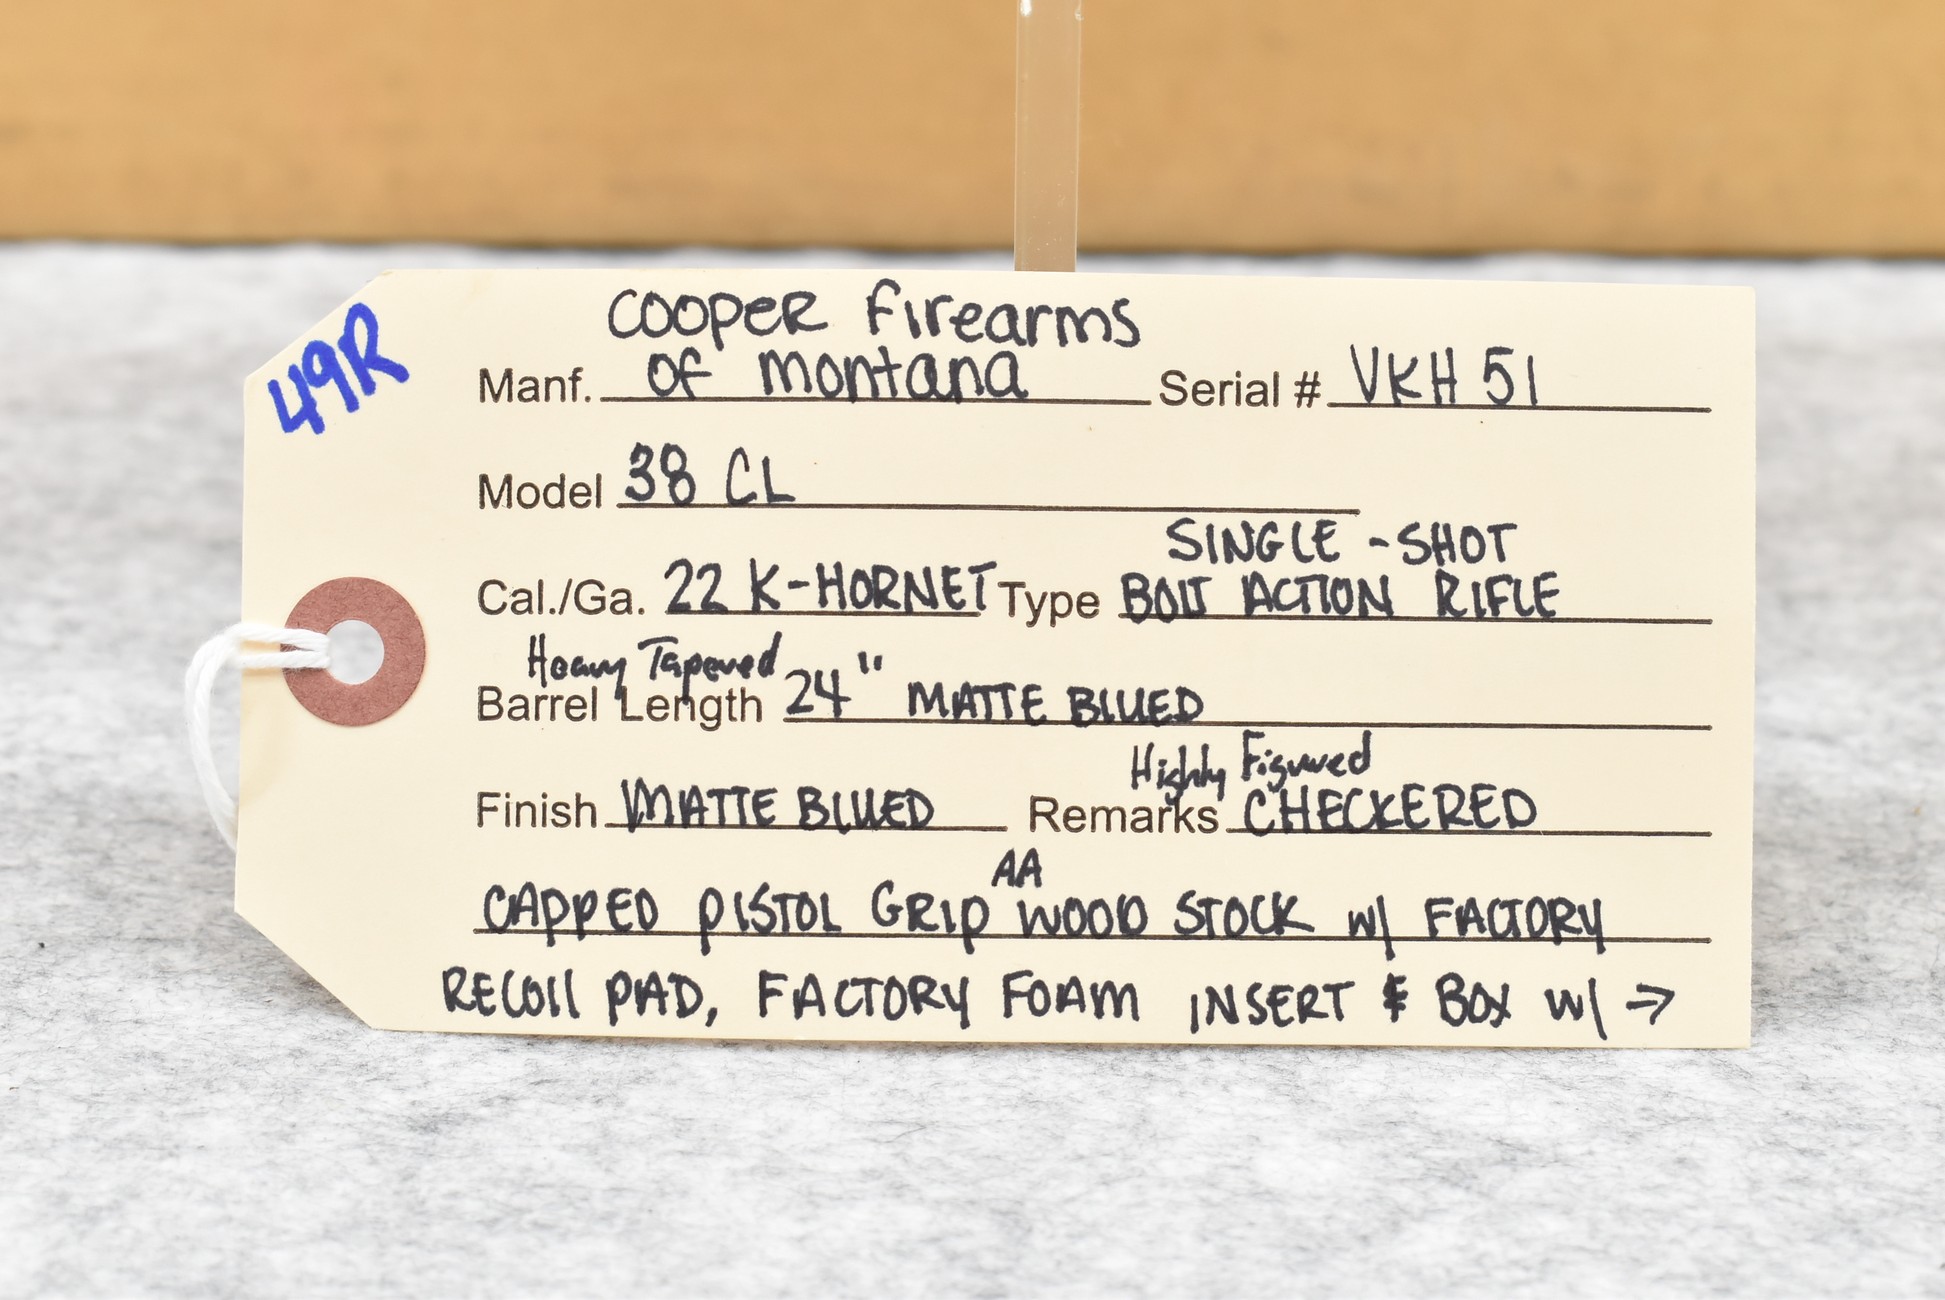 49R
Cooper Firearms
Manf. of Montana Serial # VKH 51
Model 38 CL
SINGLE-SHOT
Cal./Ga. 22 K-HORNET Type BOLT ACTION RIFLE
Heavy Tapered
Barrel Length 24" MATTE BLUED
Highly Figured
Finish MATTE BLUED Remarks CHECKERED
AA
CAPPED PISTOL GRIP WOOD STOCK w/ FACTORY
RECOIL PAD, FACTORY FOAM INSERT & BOX w/ →